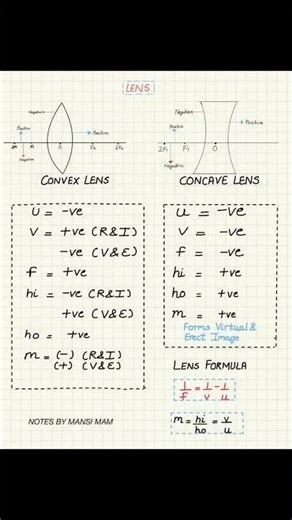 LENS
Negative
Positive
Positive
Negative
2F1
F1
O
F2
2F2
CONVEX LENS
Negative
Positive
Positive
Negative
2F1
F1
O
CONCAVE LENS
u = -ve
v = +ve (R&I)
-ve (V&E)
f = +ve
hi = -ve (R&I)
+ve (V&E)
ho = +ve
m = (-) (R&I)
(+) (V&E)
u = -ve
v = -ve
f = -ve
hi = +ve
ho = +ve
m = +ve
Forms Virtual &
Erect Image
LENS FORMULA
1/f = 1/v - 1/u
m = hi/ho = v/u
NOTES BY MANSI MAM